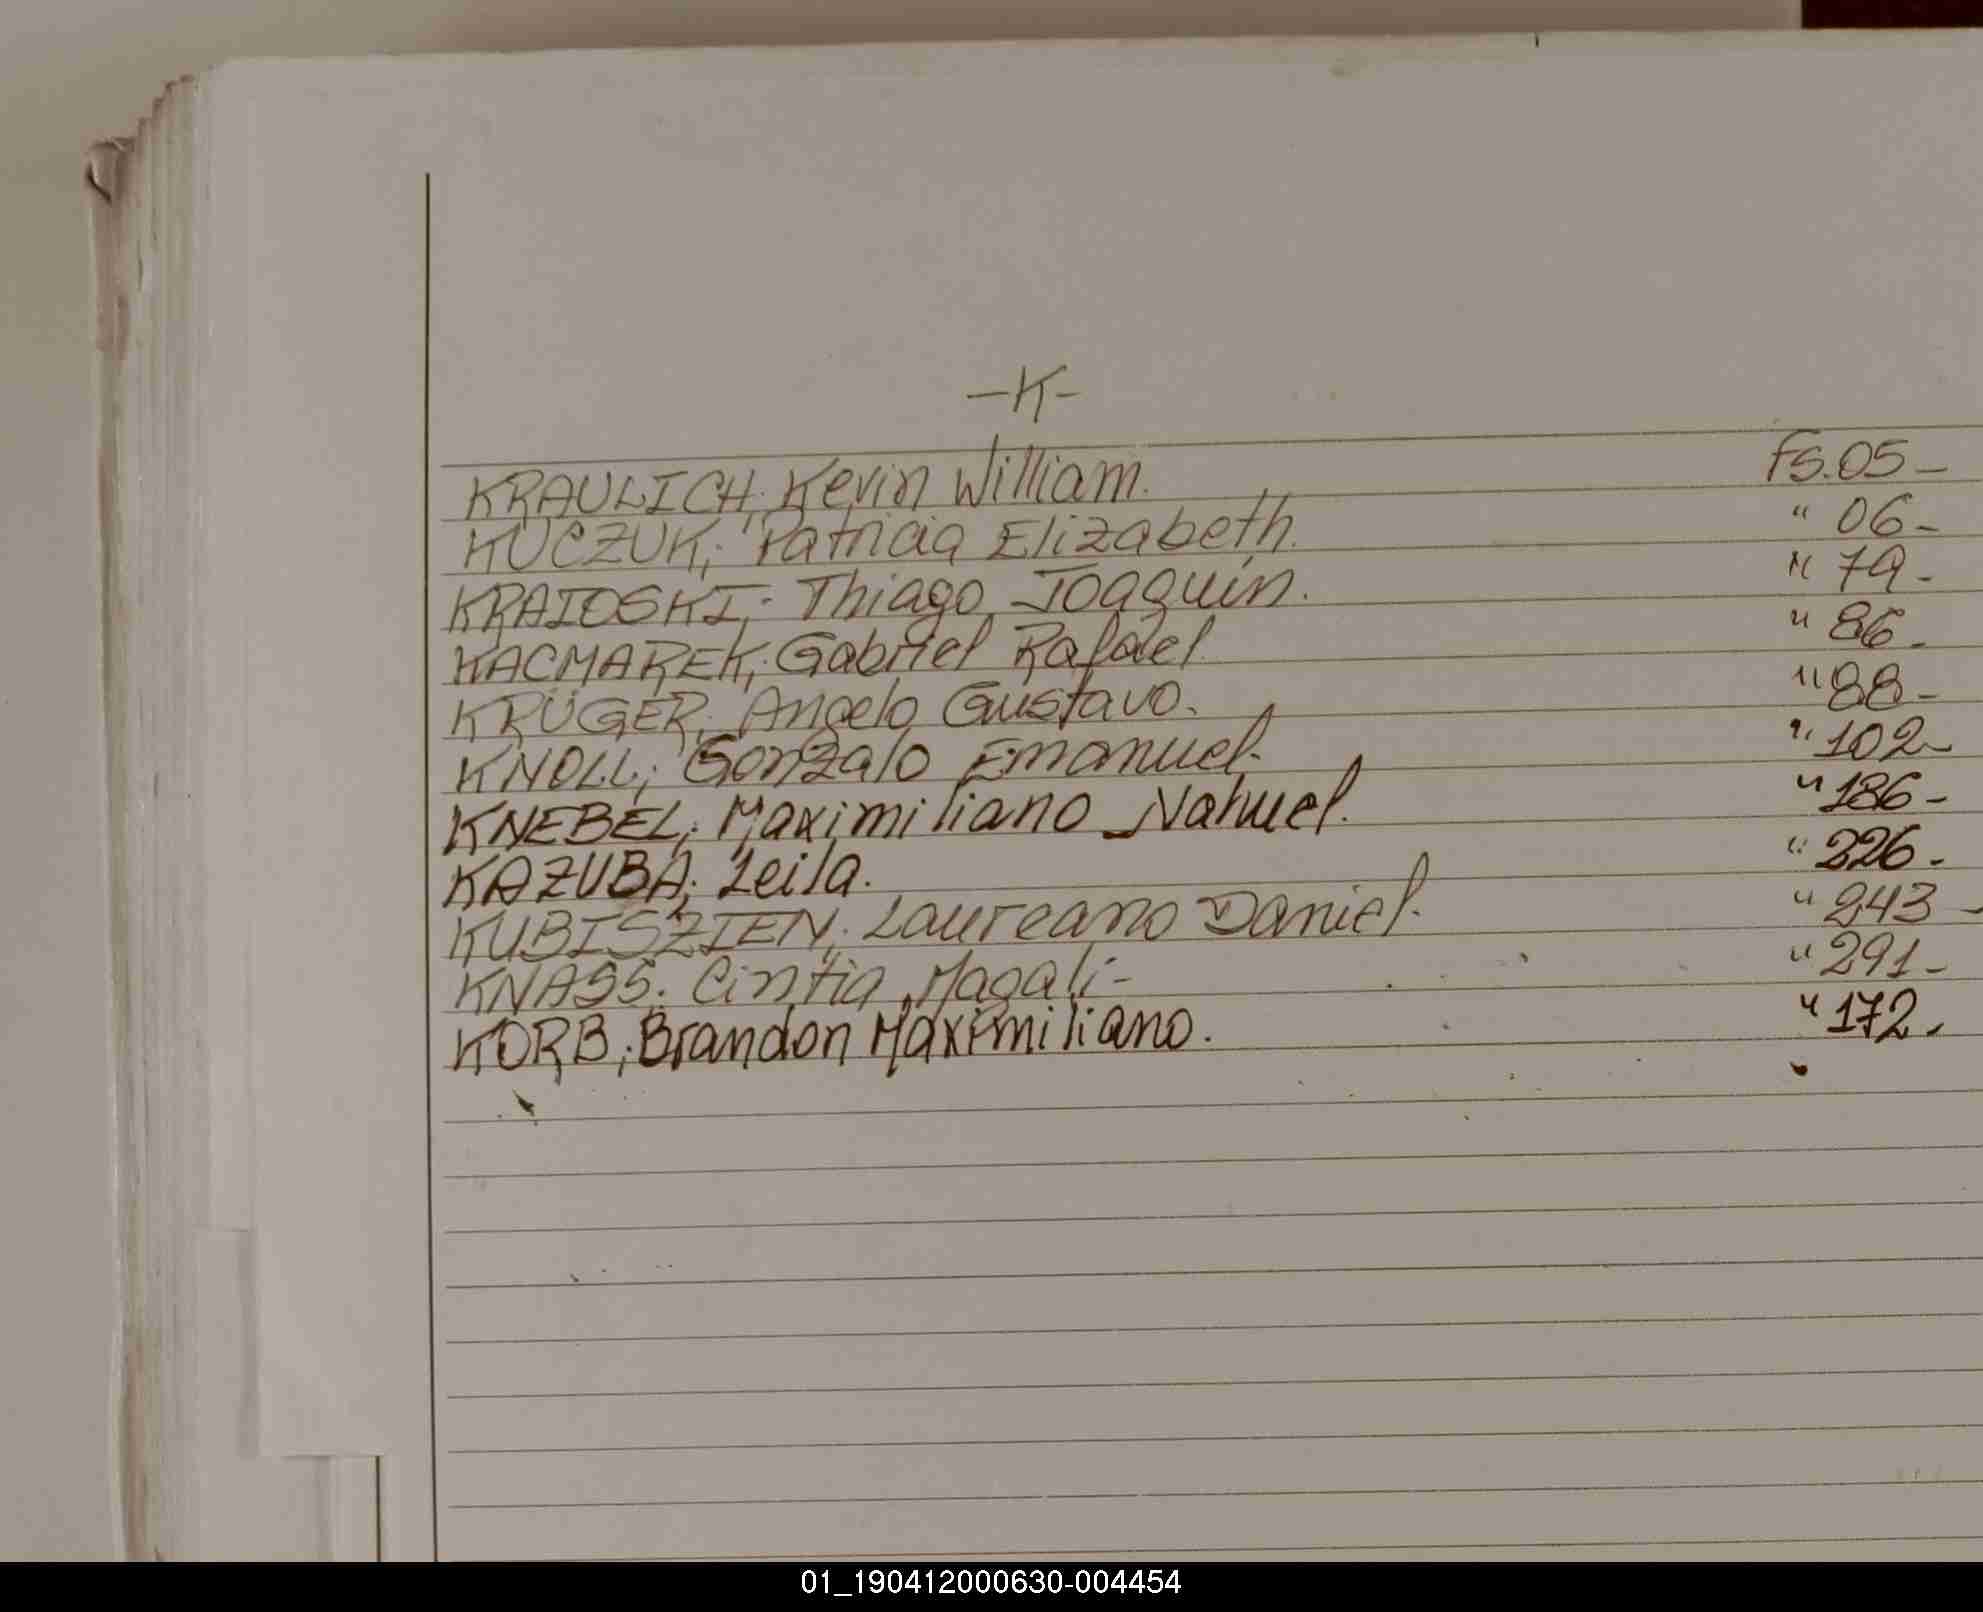 -K-
KRAULICH; Kevin William. Fs.05-
KUCZUK; Patricia Elizabeth. " 06-
KRAIOSKI; Thiago Joaquín. " 79-
KACMAREK; Gabriel Rafael " 86-
KRÜGER; Angelo Gustavo. " 88-
KNOLL; Gonzalo Emanuel- " 102-
KNEBEL; Maximiliano Nahuel. " 186-
KAZUBA; Leila. " 226-
KUBISZIEN; Laureano Daniel- " 243-
KNASS. Cintia Magali- " 291-
KORB; Brandon Maximiliano. " 172-
01_190412000630-004454